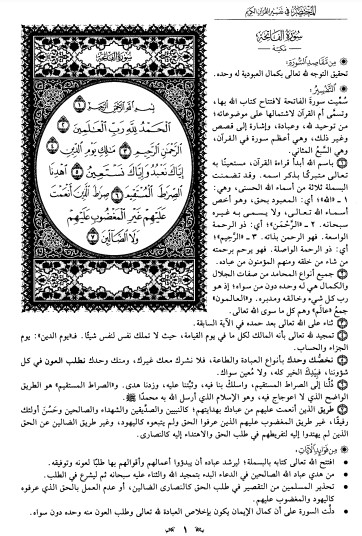 المختصر في تفسير القرآن الكريم
سورة الفاتحة
مكية
من مقاصد السورة:
تحقيق التوجه لله تعالى بكمال العبودية له وحده.
التفسير:
سُمِّيت سورة الفاتحة لافتتاح كتاب الله بها،
وتسمى أم القرآن لاشتمالها على موضوعاته؛
من توحيد لله، وعبادة، وإشارة إلى قصص
وغير ذلك، وهي أعظم سورة في القرآن،
وهي السَّبع المثاني.
باسم الله أبدأ قراءة القرآن، مستعينًا به
تعالى متبركًا بذكر اسمه. وقد تضمنت
البسملة ثلاثة من أسماء الله الحسنى، وهي:
١ - «الله»؛ أي: المعبود بحق، وهو أخص
أسماء الله تعالى، ولا يسمى به غيره
سبحانه. ٢ - «الرَّحْمَن»؛ أي: ذو الرحمة
الواسعة. فهو الرحمن بذاته. ٣ - «الرَّحِيم»؛
أي: ذو الرحمة الواصلة. فهو يرحم برحمته
من شاء من خلقه ومنهم المؤمنون من عباده.
جميع أنواع المحامد من صفات الجلال
والكمال هي له وحده دون من سواه؛ إذ هو
رب كل شيء وخالقه ومدبره. و«العالمون»
جمع «عالَم» وهم كل ما سوى الله تعالى.
ثناء على الله تعالى بعد حمده في الآية السابقة.
تمجيد لله تعالى بأنه المالك لكل ما في يوم القيامة، حيث لا تملك نفس لنفس شيئًا. فـ«يوم الدين»: يوم
الجزاء والحساب.
نخصُّك وحدك بأنواع العبادة والطاعة، فلا نشرك معك غيرك، ومنك وحدك نطلب العون في كل
شؤوننا، فبيدك الخير كله، ولا مُعين سواك.
دُلَّنا إلى الصراط المستقيم، واسلك بنا فيه، وثبّتنا عليه، وزدنا هدى. و«الصراط المستقيم» هو الطريق
الواضح الذي لا اعوجاج فيه، وهو الإسلام الذي أرسل الله به محمدًا ﷺ.
طريق الذين أنعمت عليهم من عبادك بهدايتهم؛ كالنبيين والصدِّيقين والشهداء والصالحين وحَسُن أولئك
رفيقًا، غير طريق المغضوب عليهم الذين عرفوا الحق ولم يتبعوه كاليهود، وغير طريق الضالين عن الحق
الذين لم يهتدوا إليه لتفريطهم في طلب الحق والاهتداء إليه كالنصارى.
من فوائد الآيات:
• افتتح الله تعالى كتابه بالبسملة؛ ليرشد عباده أن يبدؤوا أعمالهم وأقوالهم بها طلبًا لعونه وتوفيقه.
• من هدي عباد الله الصالحين في الدعاء البدء بتمجيد الله والثناء عليه سبحانه ثم ليشرع في الطلب.
• تحذير المسلمين من التقصير في طلب الحق كالنصارى الضالين، أو عدم العمل بالحق الذي عرفوه
كاليهود والمغضوب عليهم.
• دلَّت السورة على أن كمال الإيمان يكون بإخلاص العبادة لله تعالى وطلب العون منه وحده دون سواه.
سورة الفاتحة
بسم الله الرحمن الرحيم ١
الحمد لله رب العالمين ٢
الرحمن الرحيم ٣ مالك يوم الدين ٤
إياك نعبد وإياك نستعين ٥ اهدنا
الصراط المستقيم ٦ صراط الذين أنعمت
عليهم غير المغضوب عليهم
ولا الضالين ٧
١